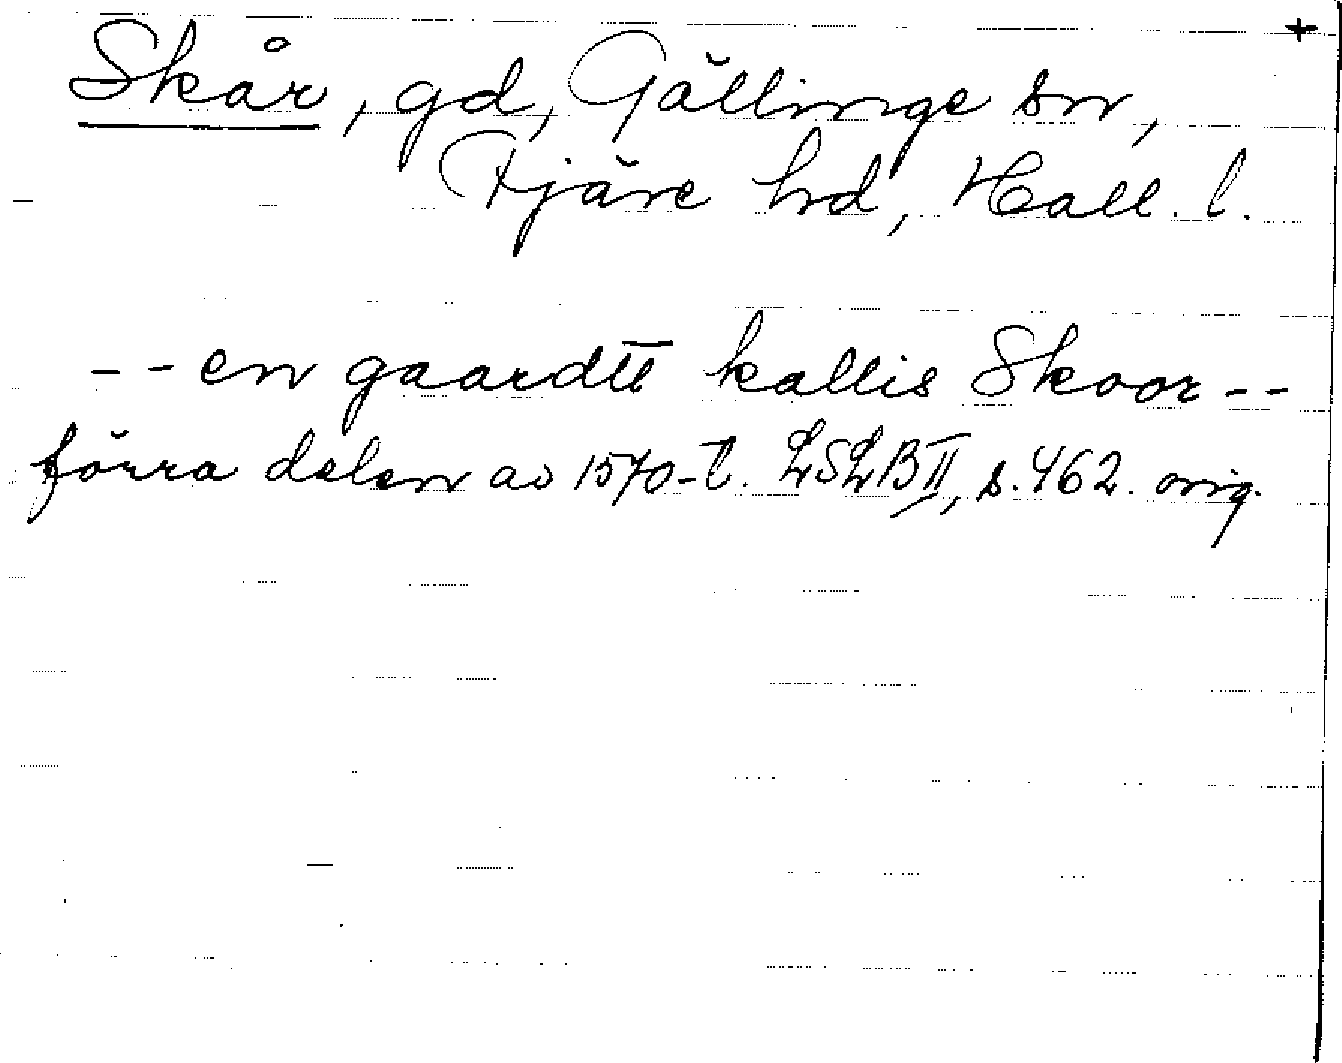 +
Skår, gd, Gällinge sn,
Fjäre hd, Hall. l.
-- en gaardtt kallis Skoor --
förra delen av 1570-t. LSLB II, s. 462. orig.